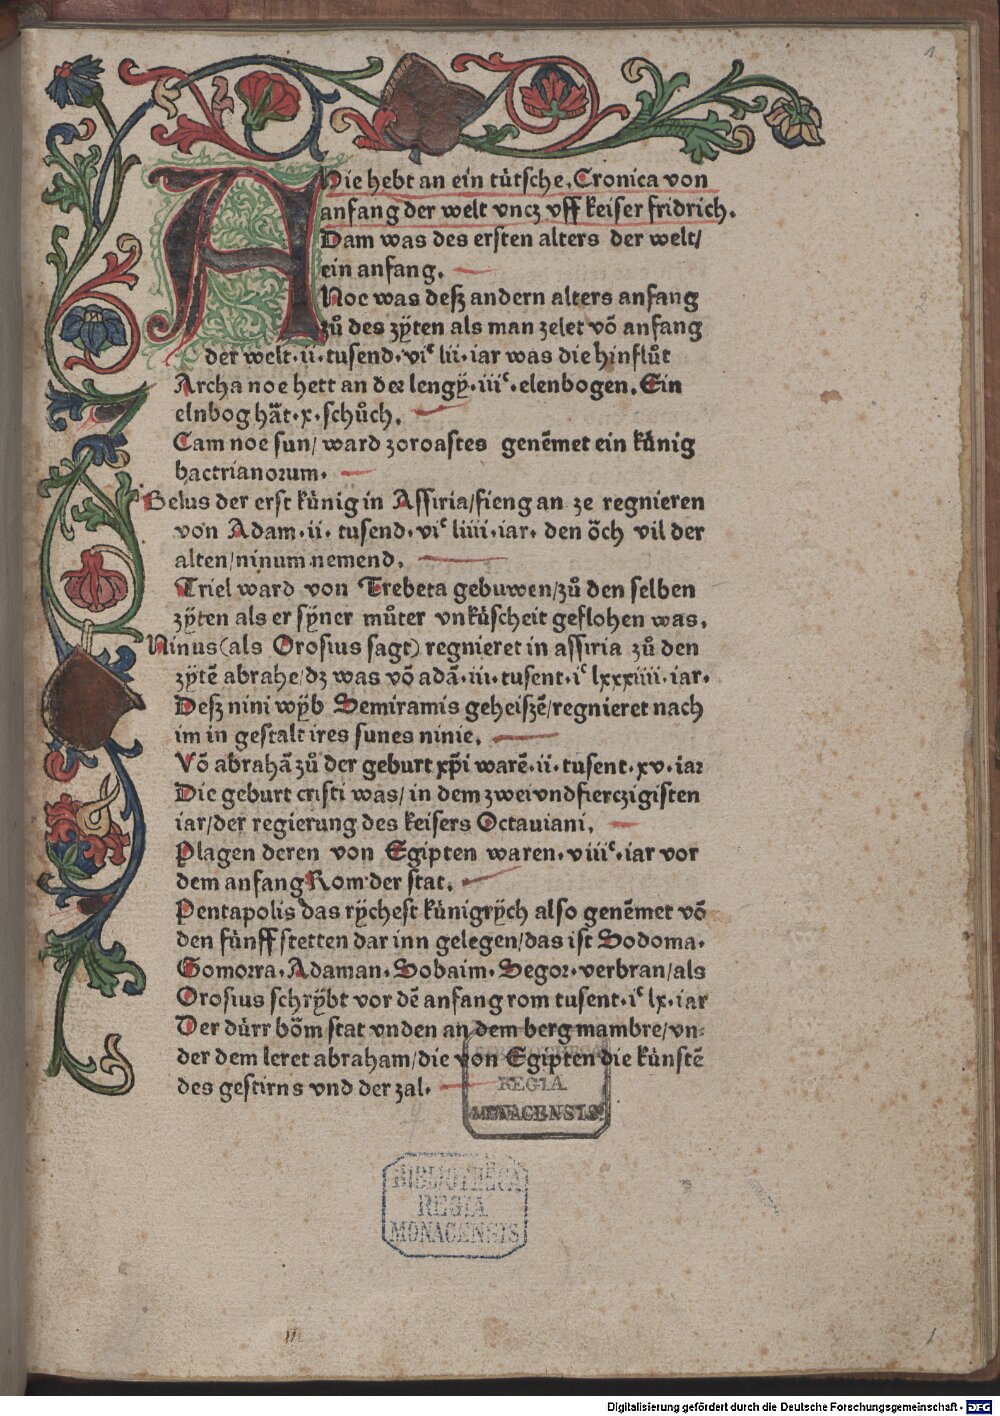 1
Hie hebt an ein tütsche. Cronica von
anfang der welt vncz vff keiser fridrich.
ADam was des ersten alters der welt/
ein anfang.
Noe was deß andern alters anfang
zů des zÿten als man zelet võ anfang
der welt. ii. tusend. viᶜ lii. iar was die hinflůt
Archa noe hett an der lengÿ. iiiᶜ. elenbogen. Ein
elnbog hät. x. schůch.
Cam noe sun/ ward zoroastes genẽmet ein künig
bactrianorum.
Belus der erst künig in Assiria/fieng an ze regnieren
von Adam. ii. tusend. viᶜ liiii. iar. den õch vil der
alten/ninum nemend.
Triel ward von Trebeta gebuwen/zů den selben
zÿten als er sÿner můter vnküscheit geflohen was.
Ninus(als Orosius sagt) regnieret in assiria zů den
zÿtẽ abrahe/dz was võ adã. iii. tusent. iᶜ lxxxiiii. iar.
Deß nini wÿb Semiramis geheißẽ/regnieret nach
im in gestalt ires sunes ninie.
Võ abrahã zů der geburt xp̃i warẽ. ii. tusent. xv. iar
Die geburt cristi was/ in dem zweivndfierczigisten
iar/der regierung des keisers Octauiani.
Plagen deren von Egipten waren. viiiᶜ. iar vor
dem anfang Rom der stat.
Pentapolis das rÿchest künigrÿch also genẽmet võ
den fünff stetten dar inn gelegen/das ist Sodoma.
Gomorra. Adaman. Sobaim. Segor. verbran/als
Orosius schrÿbt vor dẽ anfang rom tusent. iᶜ lx. iar
Der dürr bõm stat vnden an dem berg mambre/vn:
der dem leret abraham/die von Egipten die künstẽ
des gestirns vnd der zal.
BIBLIOTHECA
REGIA
MONACENSIS.
BIBLIOTHECA
REGIA
MONACENSIS
1
Digitalisierung gefördert durch die Deutsche Forschungsgemeinschaft - DFG